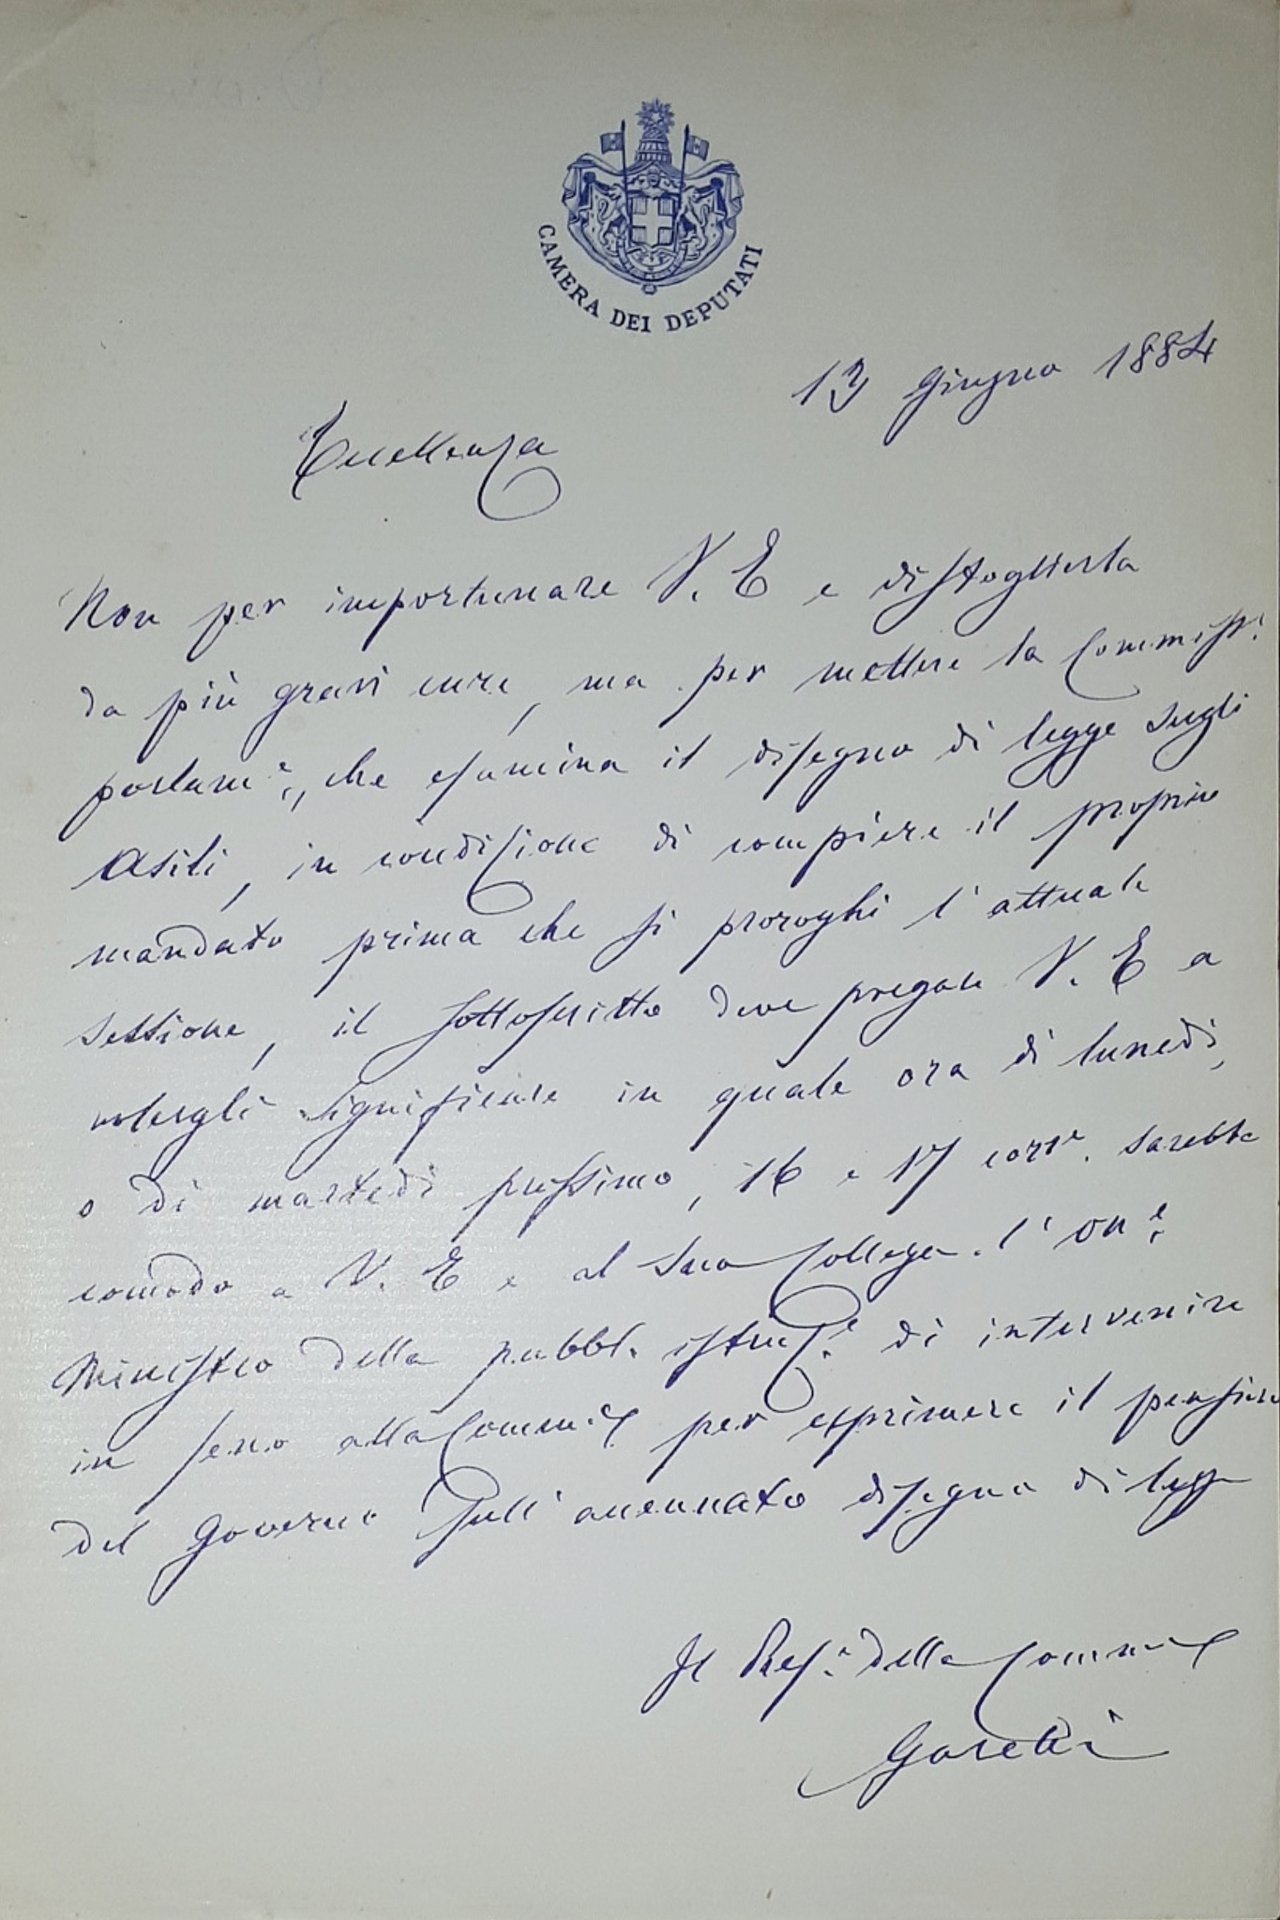 CAMERA DEI DEPUTATI
13 Giugno 1884
Eccellenza
Non per importunare V. E e distoglierla
da più gravi cure, ma per mettere la Commissi.
parlame, che esamina il disegno di legge sugli
Asili, in condizione di compiere il proprio
mandato prima che si proroghi l'attuale
sessione, il sottoscritto deve pregare V. E a
volergli significare in quale ora di lunedì,
o di martedì prossimo, 16 e 17 corre. sarebbe
comodo a V. E e al Suo Collega l'one
Ministro della pubbl. istruze di intervenire
in seno alla Comme per esprimere il pensiero
del Governo sull'accennato disegno di legge
Il Prese della Comme